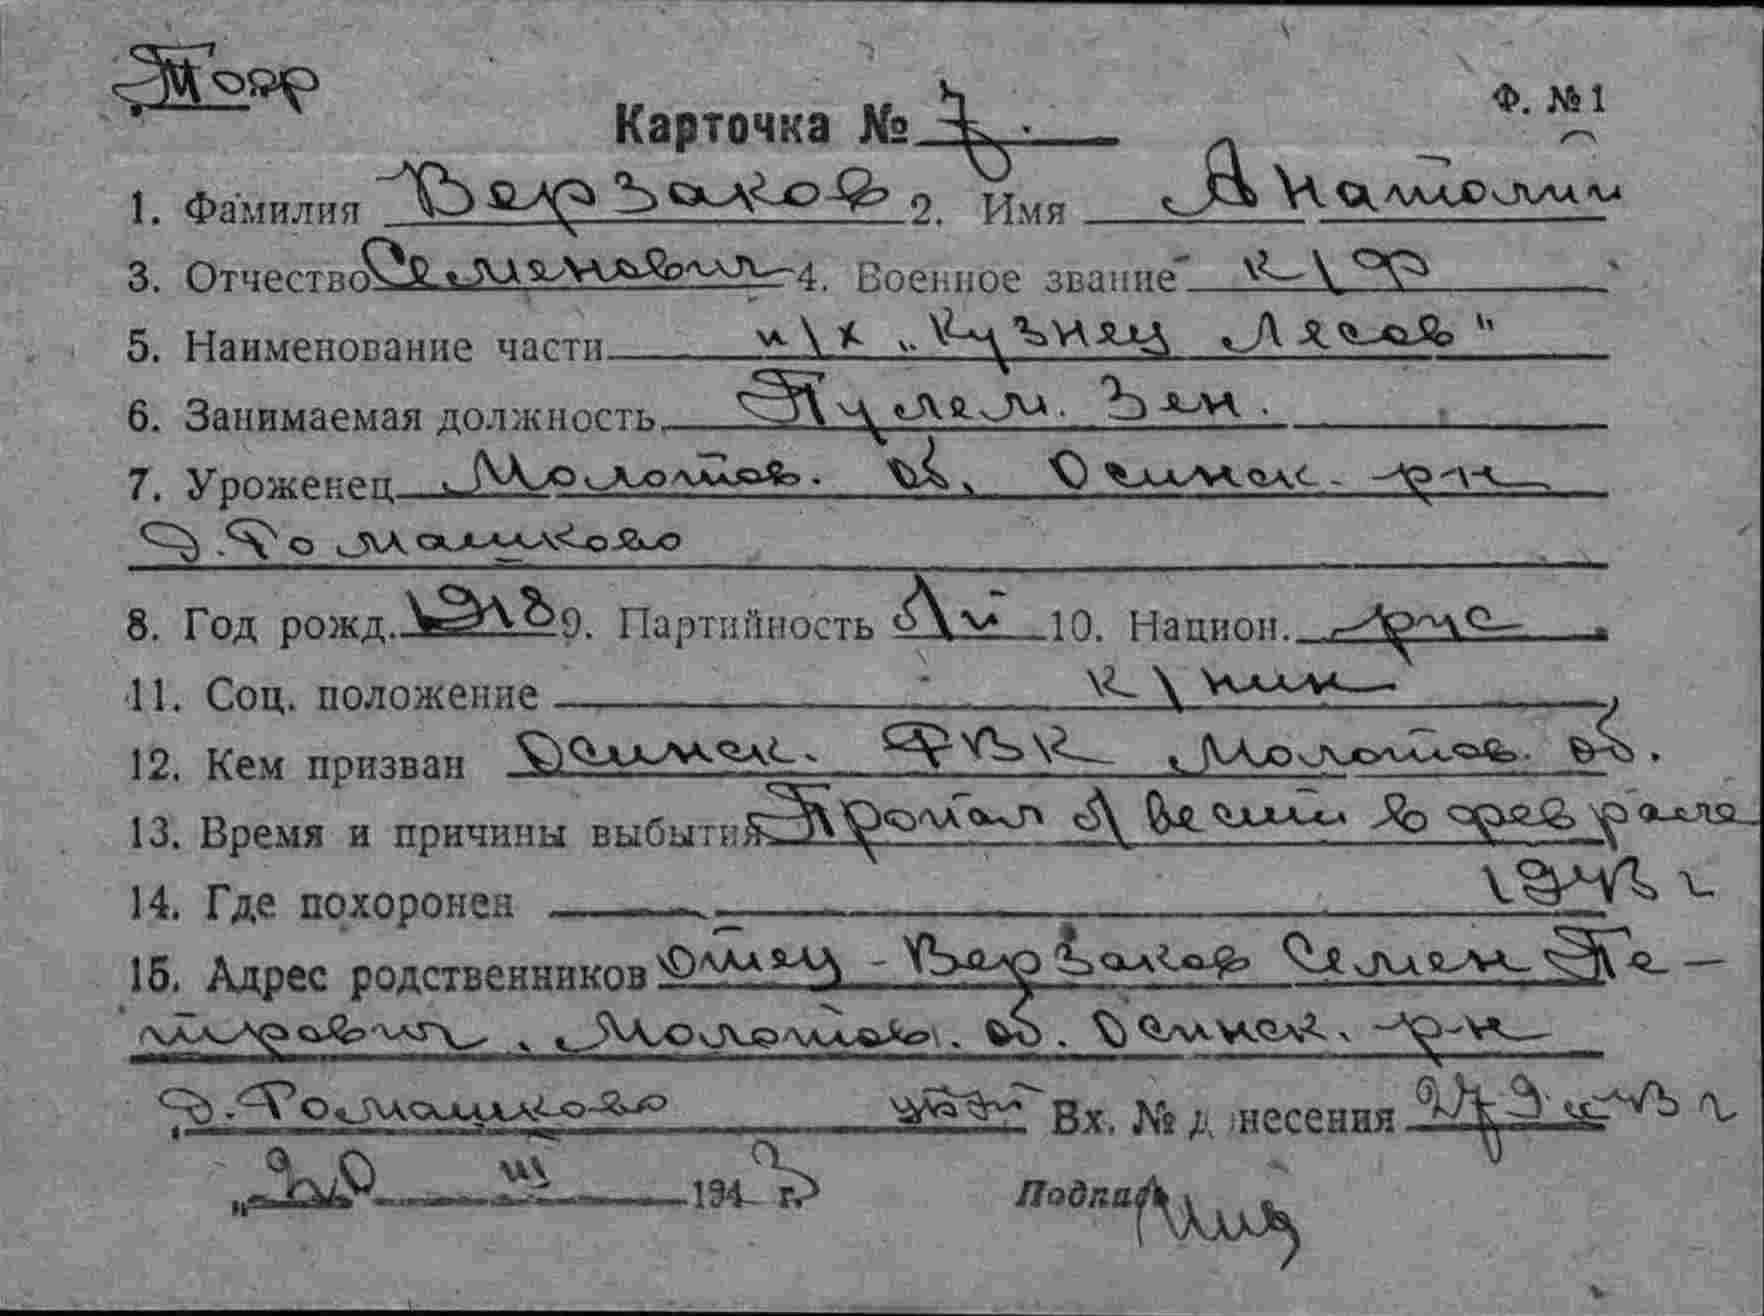 Ф. № 1
Карточка № 7.
1. Фамилия Верзаков 2. Имя Анатолий
3. Отчество Семенович 4. Военное звание к\ф
5. Наименование части п\х „Кузнец Лесов"
6. Занимаемая должность Пулем. Зен.
7. Уроженец Молотов. об. Осинск. р-н
д. Ромашково
8. Год рожд. 1918 9. Партийность б\п 10. Национ. рус
11. Соц. положение к\нин
12. Кем призван Осинск. РВК Молотов. об.
13. Время и причины выбытия Пропал б\вести в феврале
1943 г
14. Где похоронен
15. Адрес родственников отец - Верзаков Семен Пе-
трович. Молотов. об. Осинск. р-н
д. Ромашково Вх. № д несения 279 43 г
„20 III 1943 г. Подпись